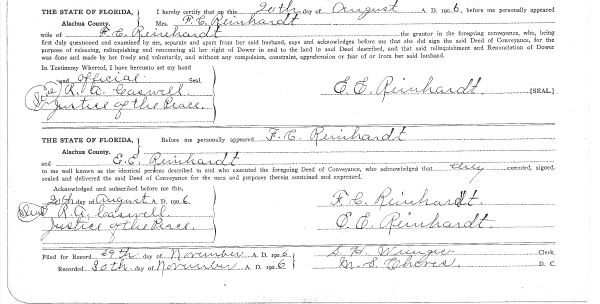 THE STATE OF FLORIDA, I hereby certify that on this 20th day of August A. D. 1906, before me personally appeared
Alachua County. Mrs. F. E. Reinhardt
wife of F. E. Reinhardt the grantor in the foregoing conveyance, who, being
first duly questioned and examined by me, separate and apart from her said husband, says and acknowledges before me that she did sign the said Deed of Conveyance, for the
purpose of releasing, relinquishing and renouncing all her right of Dower in and to the land in said Deed described, and that said relinquishment and Renunciation of Dower
was done and made by her freely and voluntarily, and without any compulsion, constraint, apprehension or fear of or from her said husband.
In Testimony Whereof, I have hereunto set my hand
and official Seal.
Seal R. A. Caswell E. E. Reinhardt. [SEAL]
Justice of the Peace.
THE STATE OF FLORIDA, Before me personally appeared F. C. Reinhardt
Alachua County.
and E. E. Reinhardt
to me well known as the identical persons described in and who executed the foregoing Deed of Conveyance, who acknowledged that they executed, signed,
sealed and delivered the said Deed of Conveyance for the uses and purposes therein contained and expressed.
Acknowledged and subscribed before me this,
20th day of August A. D. 1906. F. C. Reinhardt
Seal R. A. Caswell. E. E. Reinhardt.
Justice of the Peace.
Filed for Record 29th day of November A. D. 1906 S. H. Clerk.
Recorded 30th day of November A. D. 1906 M. S. D. C.